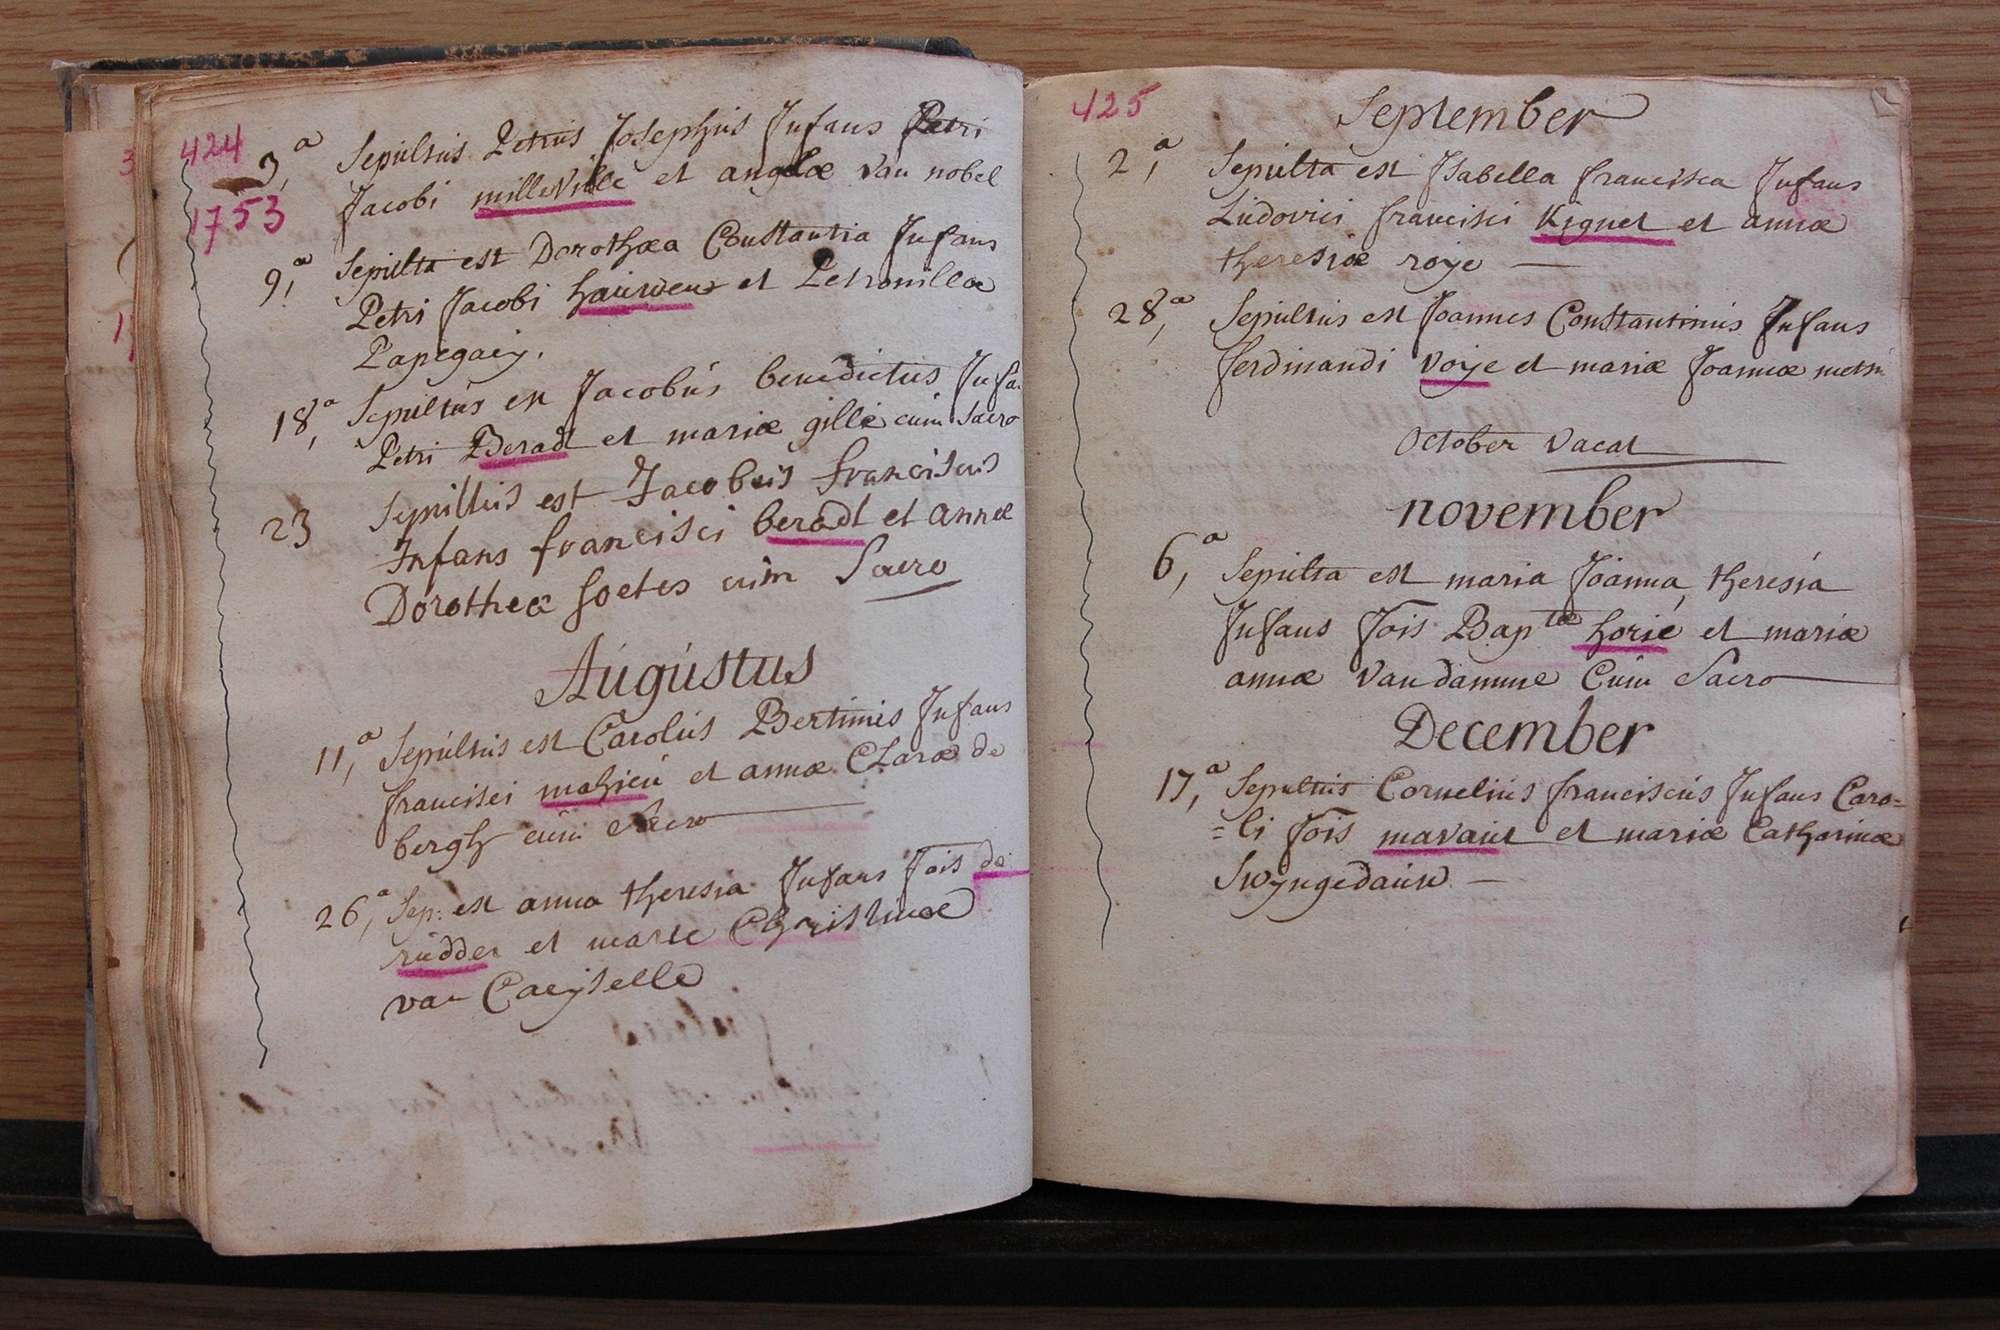 424
1753
3,a Sepultus Petrus Josephus Infans Petri
Jacobi milleville et anglæ Van nobel
9,a Sepulta est Dorothæa Constantia Infans
Petri Jacobi hauwen et Petronillæ
Papegaeij.
18,a Sepultus est Jacobus benedictus Infa.
Petri Beradt et mariæ gille cum Sacro
23 Sepultus est Jacobus franciscus
Infans francisci beradt et annæ
Dorotheæ soetes cum Sacro
Augustus
11,a Sepultus est Carolus Bertinus Infans
francisci mahieu et annæ Claræ de
bergh cum Sacro
26,a Sep: est anna theresia Infans Jois de
rudder et mariæ Christinæ
van Caeyseele
425
September
2,a Sepulta est Isabella francisca Infans
Ludovici francisci Kignet et annæ
theresiæ roye
28,a Sepultus est Joannes Constantinus Infans
ferdinandi Voije et mariæ Joannæ
October Vacat
november
6,a Sepulta est maria Joanna theresia
Infans Jois Baptæ horie et mariæ
annæ Vandamme Cum Sacro
December
17,a Sepultus Cornelius franciscus Infans Caro=
=li Jois mavaut et mariæ Catharinæ
Swyngedauw